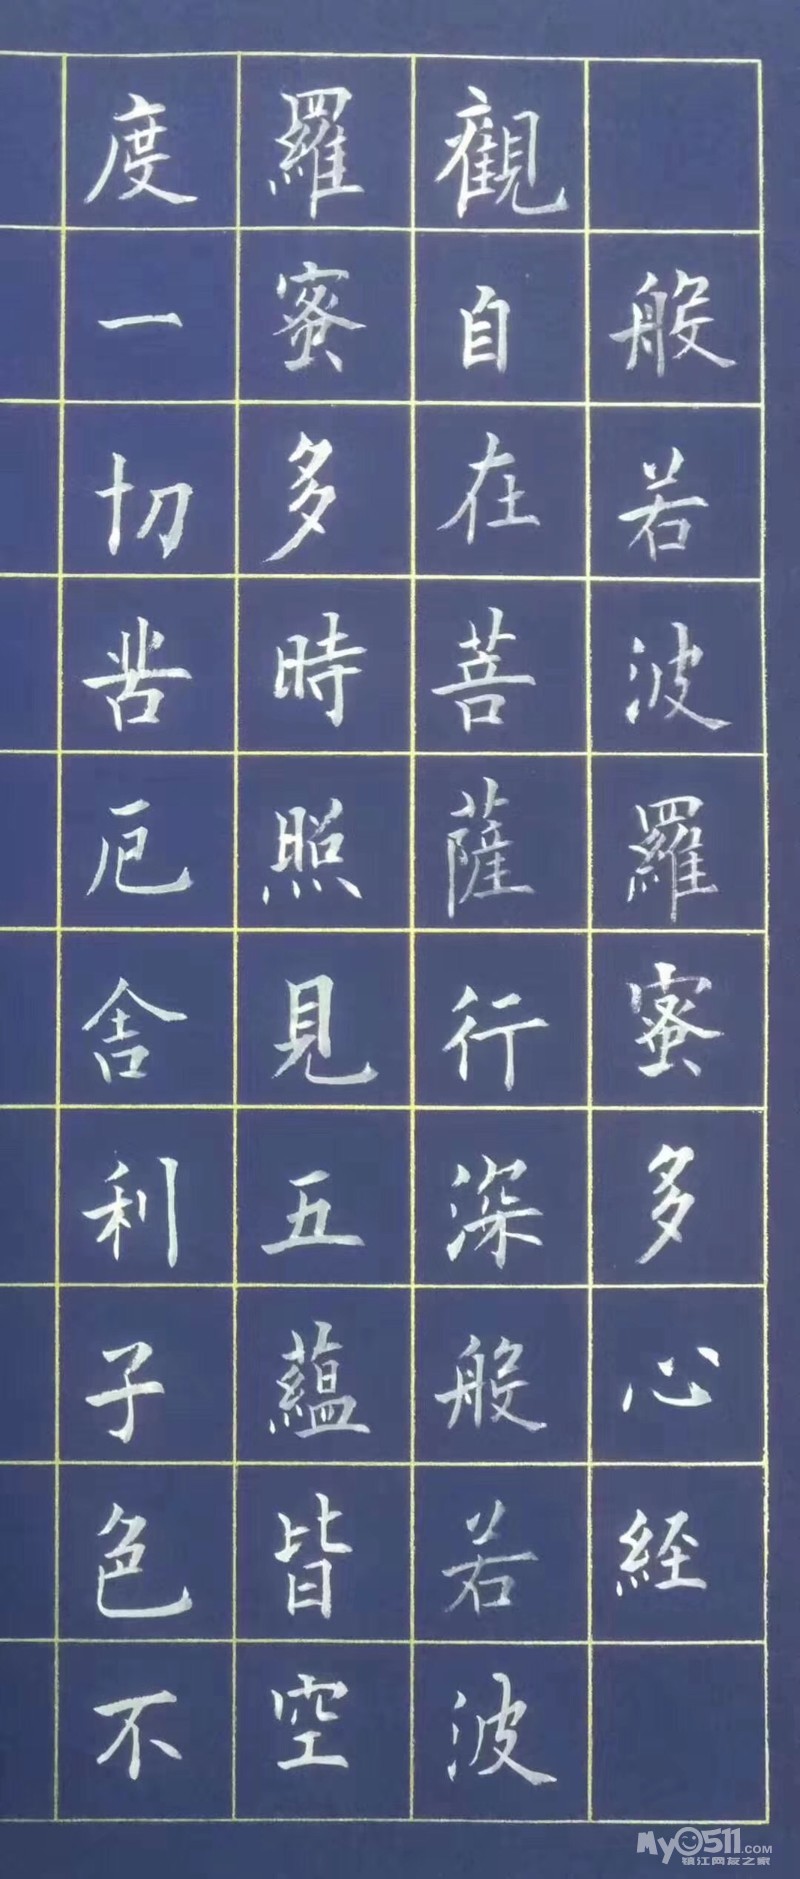 般若波羅蜜多心経
觀自在菩薩行深般若波
羅蜜多時照見五蘊皆空
度一切苦厄舎利子色不
My0511.COM
镇江网友之家